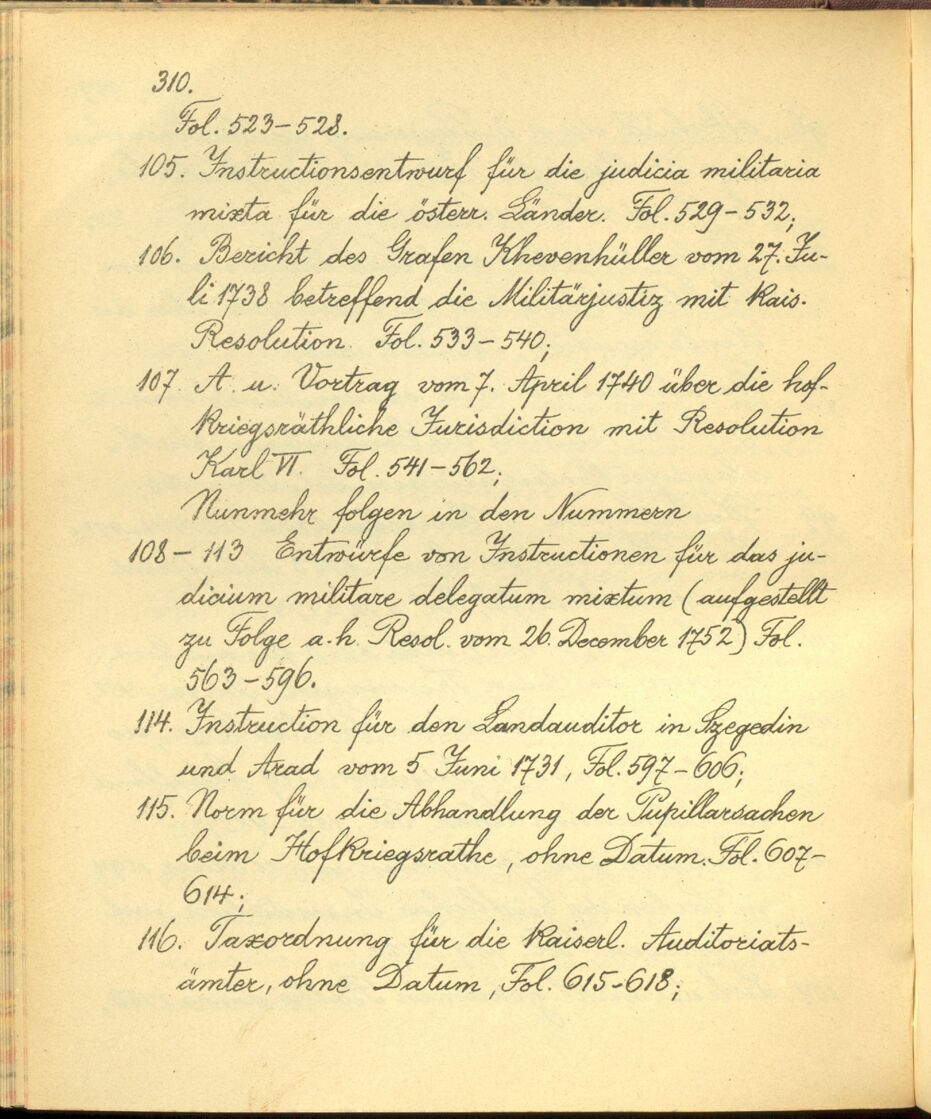 310.
Fol. 523–528.
105. Instructionsentwurf für die judicia militaria
mixta für die österr. Länder. Fol. 529–532;
106. Bericht des Grafen Khevenhüller vom 27. Ju-
li 1738 betreffend die Militärjustiz mit kais.
Resolution. Fol. 533–540;
107. A. u. Vortrag vom 7. April 1740 über die hof-
kriegsräthliche Jurisdiction mit Resolution
Karl VI. Fol. 541–562;
Nunmehr folgen in den Nummern
108–113 Entwürfe von Instructionen für das ju-
dicium militare delegatum mixtum (aufgestellt
zu Folge a. h. Resol. vom 26. December 1752) Fol.
563–596.
114. Instruction für den Landauditor in Szegedin
und Arad vom 5 Juni 1731, Fol. 597–606;
115. Norm für die Abhandlung der Pupillarsachen
beim Hofkriegsrathe, ohne Datum. Fol. 607–
614;
116. Taxordnung für die kaiserl. Auditoriats-
ämter, ohne Datum, Fol. 615-618;